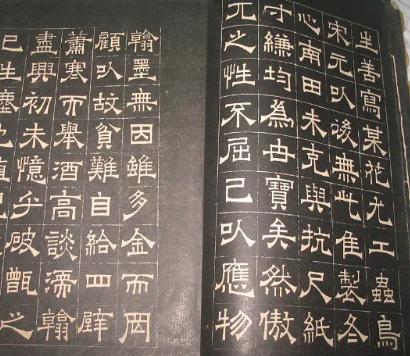 生善寫某花尤工蟲鳥
宋元以後無此佳製冬
心南田未克與抗尺紙
寸縑均為古寶矣然傲
兀之性不屈己以應物
翰墨無因雖多金而罔
顧以故貧難自給四壁
蕭寒而舉酒高談濡翰
盡興初未憶乎破甑之
已生塵也值